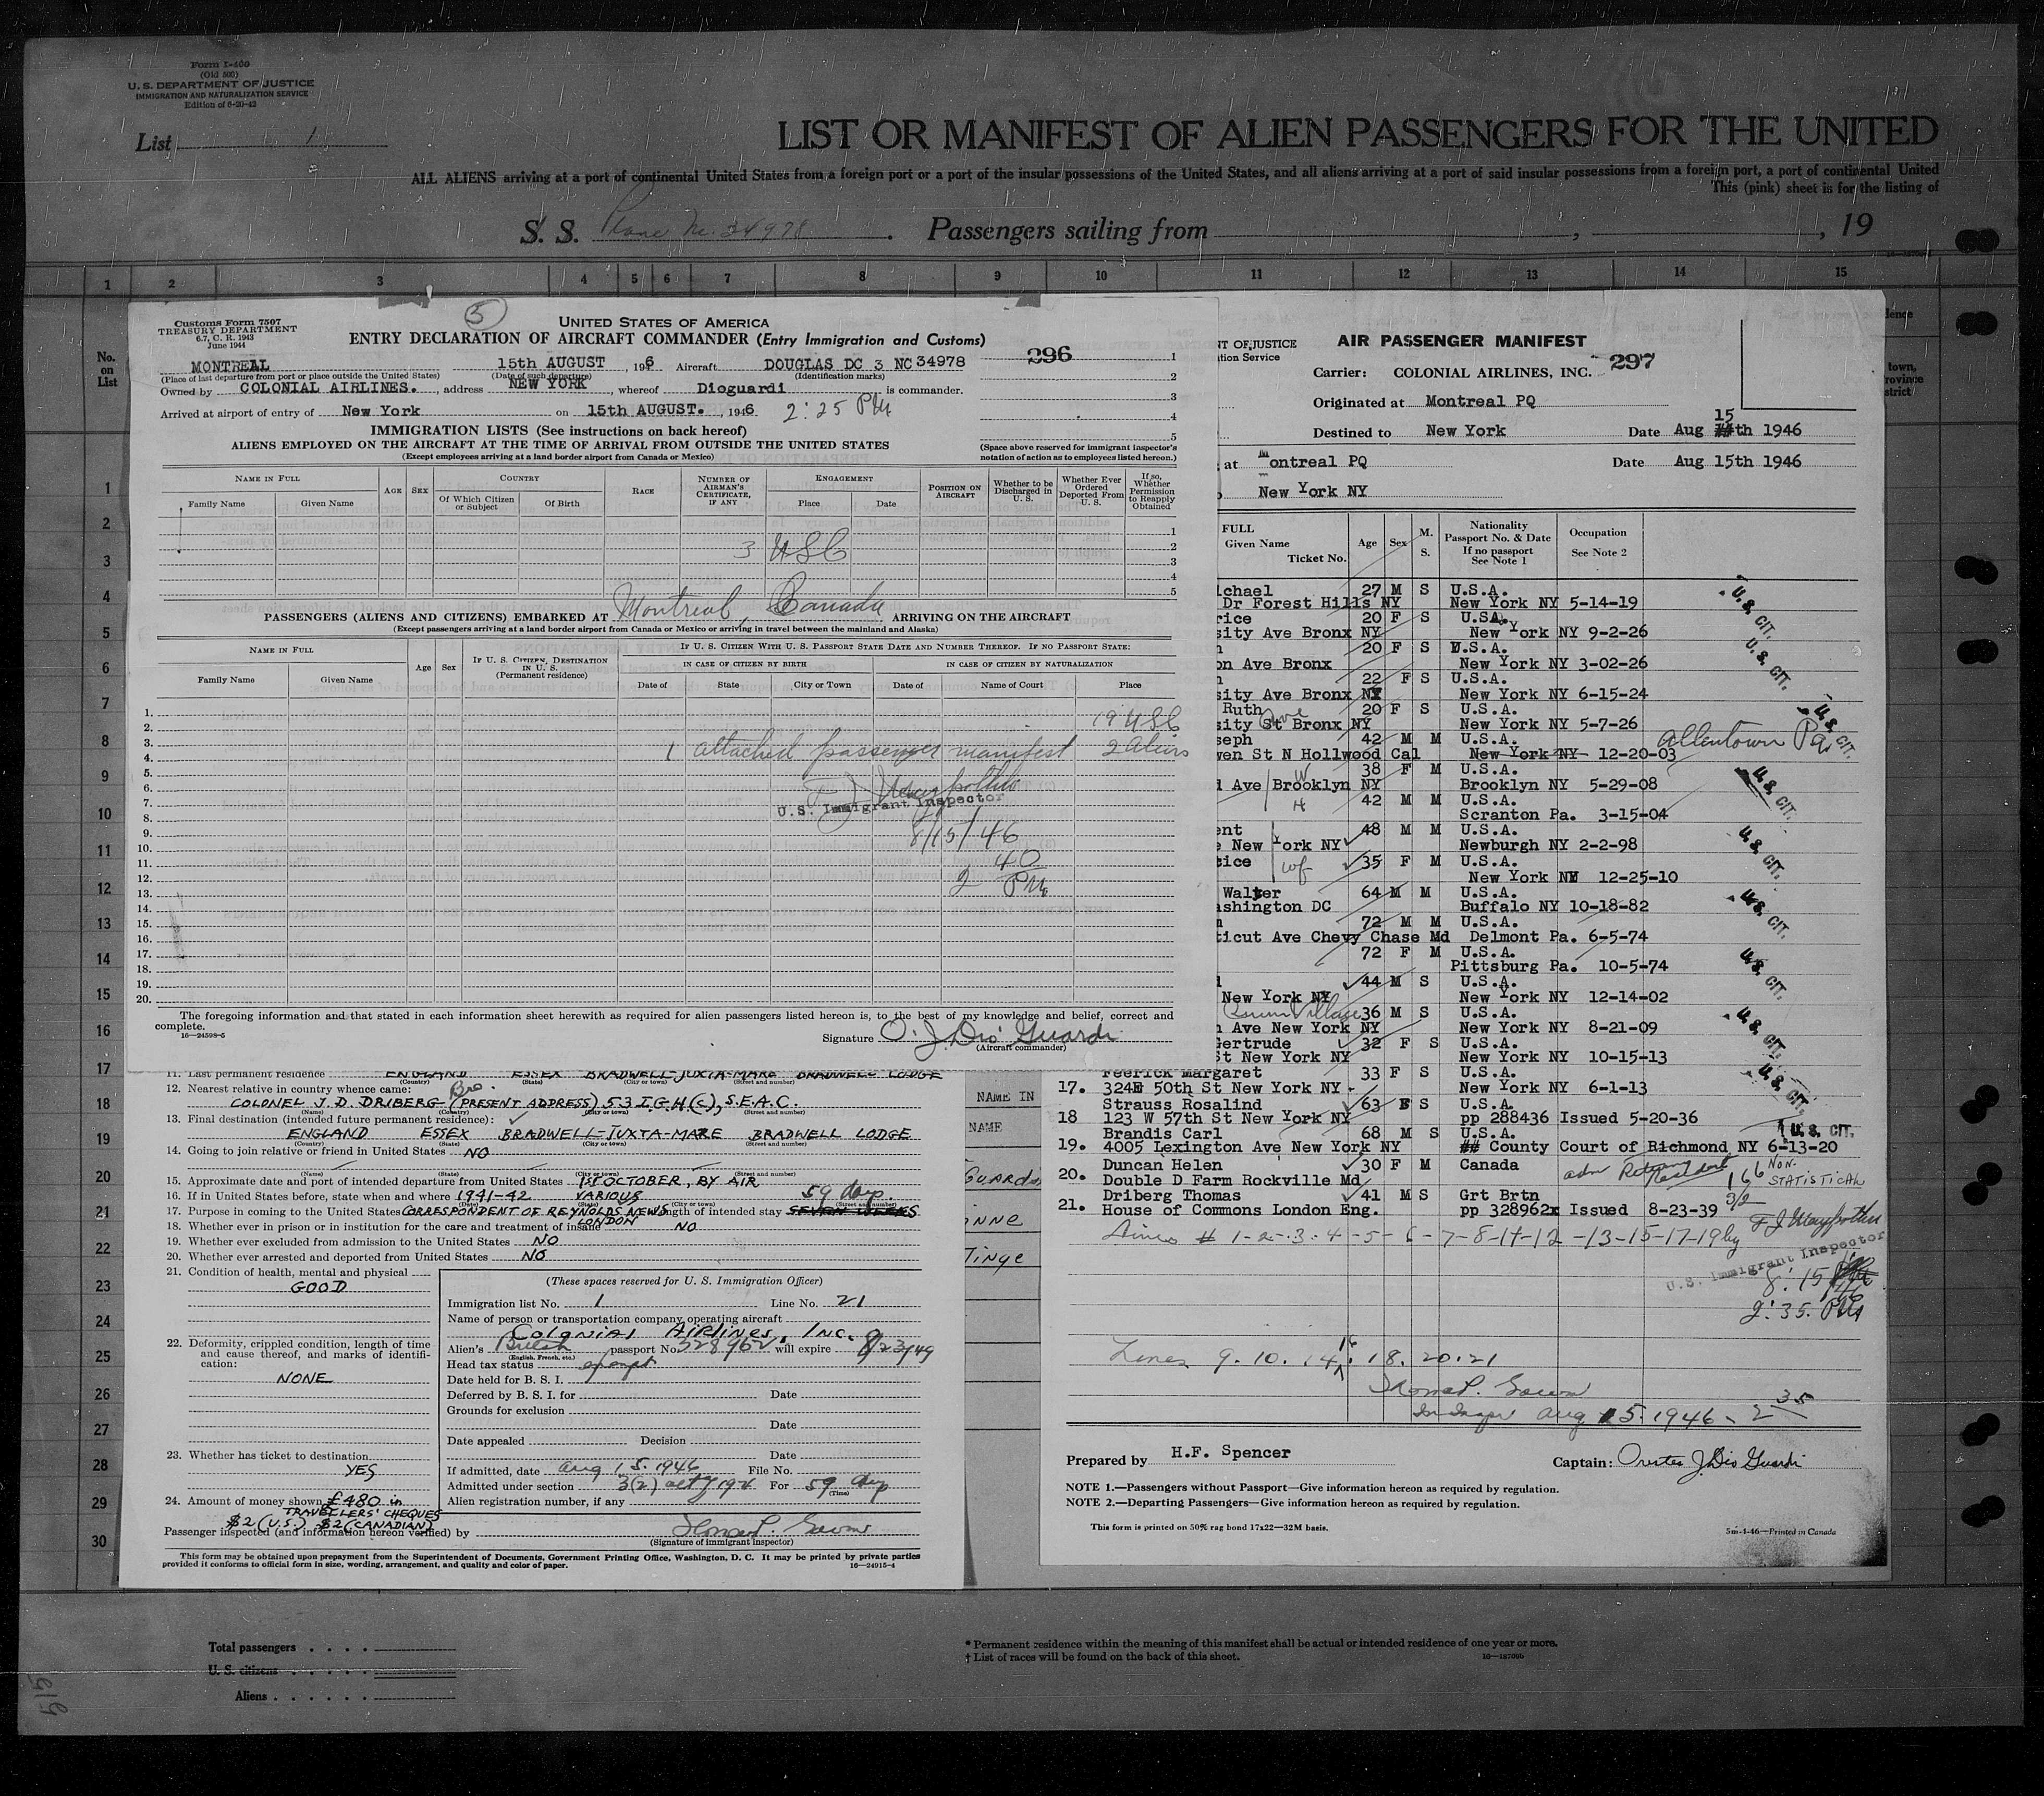 Form I-400
(Old 500)
U. S. DEPARTMENT OF JUSTICE
IMMIGRATION AND NATURALIZATION SERVICE
Edition of 6-20-42
List 1
LIST OR MANIFEST OF ALIEN PASSENGERS FOR THE UNITED
ALL ALIENS arriving at a port of continental United States from a foreign port or a port of the insular possessions of the United States, and all aliens arriving at a port of said insular possessions from a foreign port, a port of continental United
This (pink) sheet is for the listing of
S. S. Plane No. 34978 . Passengers sailing from , , 19
1 2 3 4 5 6 7 8 9 10 11 12 13 14 15
No. on List
1
2
3
4
5
6
7
8
9
10
11
12
13
14
15
16
17
18
19
20
21
22
23
24
25
26
27
28
29
30
Customs Form 7507
TREASURY DEPARTMENT
6.7, C. R. 1943
June 1944
5
UNITED STATES OF AMERICA
ENTRY DECLARATION OF AIRCRAFT COMMANDER (Entry Immigration and Customs)
296
MONTREAL 15th AUGUST , 1946 Aircraft DOUGLAS DC 3 NC 34978
(Place of last departure from port or place outside the United States) (Date of such departure) (Identification marks)
Owned by COLONIAL AIRLINES. , address NEW YORK , whereof Dioguardi is commander.
Arrived at airport of entry of New York on 15th AUGUST. , 1946 2:25 PM
IMMIGRATION LISTS (See instructions on back hereof)
ALIENS EMPLOYED ON THE AIRCRAFT AT THE TIME OF ARRIVAL FROM OUTSIDE THE UNITED STATES
(Except employees arriving at a land border airport from Canada or Mexico)
(Space above reserved for immigrant inspector's notation of action as to employees listed hereon.)
NAME IN FULL
Family Name Given Name
AGE SEX
COUNTRY
Of Which Citizen or Subject Of Birth
RACE
NUMBER OF AIRMAN'S CERTIFICATE, IF ANY
ENGAGEMENT
Place Date
POSITION ON AIRCRAFT
Whether to be Discharged in U. S.
Whether Ever Ordered Deported From U. S.
If so, Whether Permission to Reapply Obtained
3 USC
PASSENGERS (ALIENS AND CITIZENS) EMBARKED AT Montreal, Canada ARRIVING ON THE AIRCRAFT
(Except passengers arriving at a land border airport from Canada or Mexico or arriving in travel between the mainland and Alaska)
NAME IN FULL
Family Name Given Name
Age Sex
IF U. S. CITIZEN, DESTINATION IN U. S. (Permanent residence)
IF U. S. CITIZEN WITH U. S. PASSPORT STATE DATE AND NUMBER THEREOF. IF NO PASSPORT STATE:
IN CASE OF CITIZEN BY BIRTH IN CASE OF CITIZEN BY NATURALIZATION
Date of State City or Town Date of Name of Court Place
1.
2. 19 USC
3. 1 attached passenger manifest 2 Aliens
4.
5.
6.
7. U. S. Immigrant Inspector
8.
9. 8/15/46
10.
11. 40
12. 2 PM
13.
14.
15.
16.
17.
18.
19.
20.
The foregoing information and that stated in each information sheet herewith as required for alien passengers listed hereon is, to the best of my knowledge and belief, correct and complete.
16—24598-5
Signature O. J. Dio Guardi
(Aircraft commander)
11. Last permanent residence ENGLAND ESSEX BRADWELL-JUXTA-MARE BRADWELL LODGE
(Country) (State) (City or town) (Street and number)
12. Nearest relative in country whence came: Bro.
COLONEL J. D. DRIBERG (PRESENT ADDRESS) 53 I.G.H(C), S.E.A.C.
(Name) (Country) (City or town) (Street and number)
13. Final destination (intended future permanent residence):
ENGLAND ESSEX BRADWELL-JUXTA-MARE BRADWELL LODGE
(Country) (State) (City or town) (Street and number)
14. Going to join relative or friend in United States NO
(Name) (State) (City or town) (Street and number)
15. Approximate date and port of intended departure from United States 1ST OCTOBER, BY AIR
16. If in United States before, state when and where 1941-42 VARIOUS 59 days.
(Date) (State) (City or town)
17. Purpose in coming to the United States CORRESPONDENT OF REYNOLDS NEWS LONDON Length of intended stay SEVEN WEEKS
18. Whether ever in prison or in institution for the care and treatment of insane NO
19. Whether ever excluded from admission to the United States NO
20. Whether ever arrested and deported from United States NO
21. Condition of health, mental and physical
GOOD
22. Deformity, crippled condition, length of time and cause thereof, and marks of identification:
NONE
23. Whether has ticket to destination
YES
24. Amount of money shown £480 in TRAVELLERS' CHEQUES
$2 (U.S.) $2 (CANADIAN)
(These spaces reserved for U. S. Immigration Officer)
Immigration list No. 1 Line No. 21
Name of person or transportation company operating aircraft
Colonial Airlines, Inc.
Alien's British passport No. 328962 will expire 8/23/49
(English, French, etc.)
Head tax status exempt
Date held for B. S. I.
Deferred by B. S. I. for Date
Grounds for exclusion
Date
Date appealed Decision
Date
If admitted, date Aug 15. 1946 File No.
Admitted under section 3(2) act of 1924 For 59 days
(Time)
Alien registration number, if any
Passenger inspected (and information hereon verified) by
(Signature of immigrant inspector)
This form may be obtained upon prepayment from the Superintendent of Documents, Government Printing Office, Washington, D. C. It may be printed by private parties provided it conforms to official form in size, wording, arrangement, and quality and color of paper. 16—24915-4
NAME IN
NAME
Guardi
inne
Tinge
NT OF JUSTICE
tion Service
AIR PASSENGER MANIFEST
297
Carrier: COLONIAL AIRLINES, INC.
Originated at Montreal PQ
Destined to New York Date Aug 15th 1946
at Montreal PQ Date Aug 15th 1946
New York NY
FULL
Given Name
Ticket No.
Age Sex M. S.
Nationality
Passport No. & Date
If no passport
See Note 1
Occupation
See Note 2
ichael 27 M S U.S.A. U.S. CIT.
Dr Forest Hills NY New York NY 5-14-19
rice 20 F S U.S.A.
sity Ave Bronx NY New York NY 9-2-26
n 20 F S U.S.A. U.S. CIT.
on Ave Bronx New York NY 3-02-26
n 22 F S U.S.A.
sity Ave Bronx NY New York NY 6-15-24
Ruth 20 F S U.S.A. U.S. CIT.
sity St Ave Bronx NY New York NY 5-7-26
seph 42 M M U.S.A. Allentown Pa.
wen St N Hollwood Cal New York NY 12-20-03
W 38 F M U.S.A. U.S. CIT.
d Ave Brooklyn NY Brooklyn NY 5-29-08
H 42 M M U.S.A.
Scranton Pa. 3-15-04
ent 48 M M U.S.A. U.S. CIT.
e New York NY Newburgh NY 2-2-98
tice wf 35 F M U.S.A.
New York NY 12-25-10
Walter 64 M M U.S.A. U.S. CIT.
ashington DC Buffalo NY 10-18-82
n 72 M M U.S.A.
ticut Ave Chevy Chase Md Delmont Pa. 6-5-74
72 F M U.S.A. U.S. CIT.
Pittsburg Pa. 10-5-74
44 M S U.S.A.
New York NY New York NY 12-14-02
Queens Village 36 M S U.S.A. U.S. CIT.
n Ave New York NY New York NY 8-21-09
Gertrude 32 F S U.S.A.
St New York NY New York NY 10-15-13
Feerick Margaret 33 F S U.S.A. U.S. CIT.
17. 324E 50th St New York NY New York NY 6-1-13
Strauss Rosalind 63 F S U.S.A.
18 123 W 57th St New York NY pp 288436 Issued 5-20-36
Brandis Carl 68 M S U.S.A. U.S. CIT.
19. 4005 Lexington Ave New York NY ## County Court of Richmond NY 6-13-20
20. Duncan Helen 30 F M Canada adm Returning Resident 166 NON-STATISTICAL
Double D Farm Rockville Md
21. Driberg Thomas 41 M S Grt Brtn 3/2
House of Commons London Eng. pp 328962x Issued 8-23-39
Lines # 1-2-3-4-5-6-7-8-11-12-13-15-17-19 by
U. S. Immigrant Inspector
8:15
2:35. PM
Lines 9. 10. 14. 16 18. 20. 21
Aug 15. 1946 - 2 35
Prepared by H.F. Spencer Captain: Orestes J. Dio Guardi
NOTE 1.—Passengers without Passport—Give information hereon as required by regulation.
NOTE 2.—Departing Passengers—Give information hereon as required by regulation.
This form is printed on 50% rag bond 17x22—32M basis. 5m-4-46—Printed in Canada
Total passengers
U. S. citizens
Aliens
* Permanent residence within the meaning of this manifest shall be actual or intended residence of one year or more.
† List of races will be found on the back of this sheet.